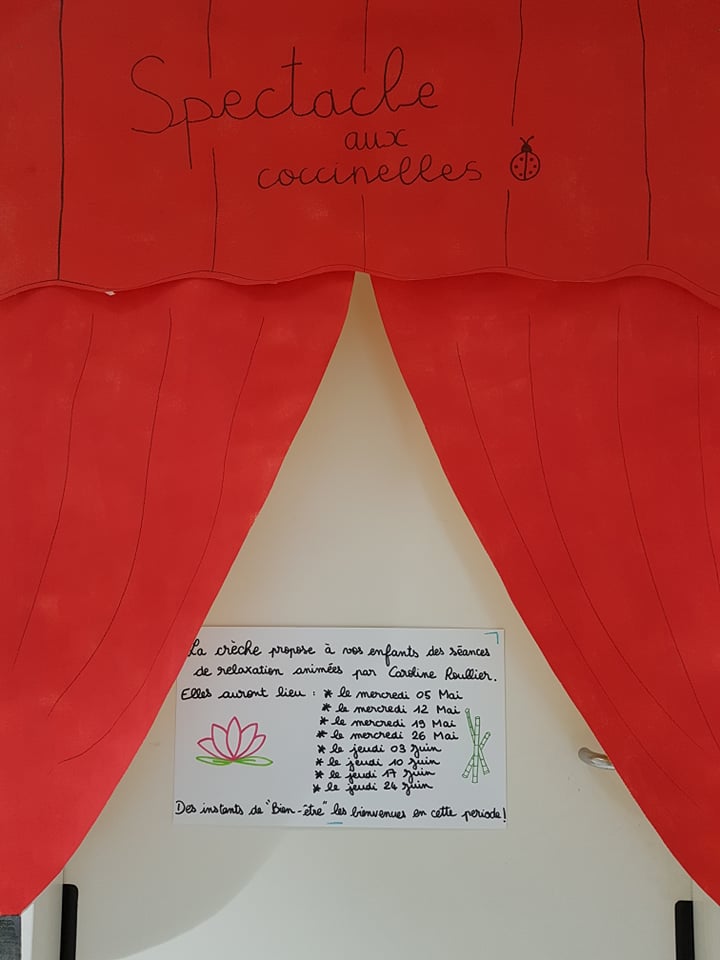 Spectacle
aux
coccinelles
La crèche propose à vos enfants des séances
de relaxation animées par Caroline Roullier.
Elles auront lieu : * le mercredi 05 Mai
* le mercredi 12 Mai
* le mercredi 19 Mai
* le mercredi 26 Mai
* le jeudi 03 Juin
* le jeudi 10 Juin
* le jeudi 17 Juin
* le jeudi 24 Juin
Des instants de "Bien-être" les bienvenues en cette periode!